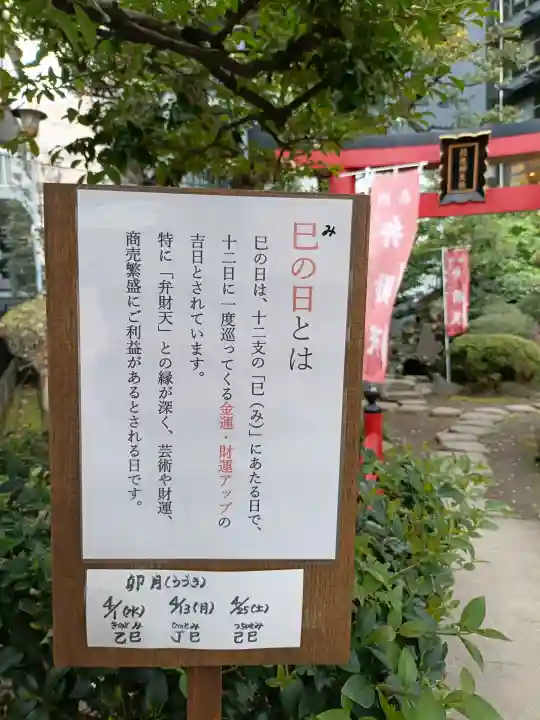 巳の日とは
み
巳の日は、十二支の「巳（み）」にあたる日で、
十二日に一度巡ってくる金運・財運アップの
吉日とされています。
特に「弁財天」との縁が深く、芸術や財運、
商売繁盛にご利益があるとされる日です。
卯月(うづき)
4/1(水) 4/13(月) 4/25(土)
きのとみ ひのとみ つちのとみ
乙巳 丁巳 己巳